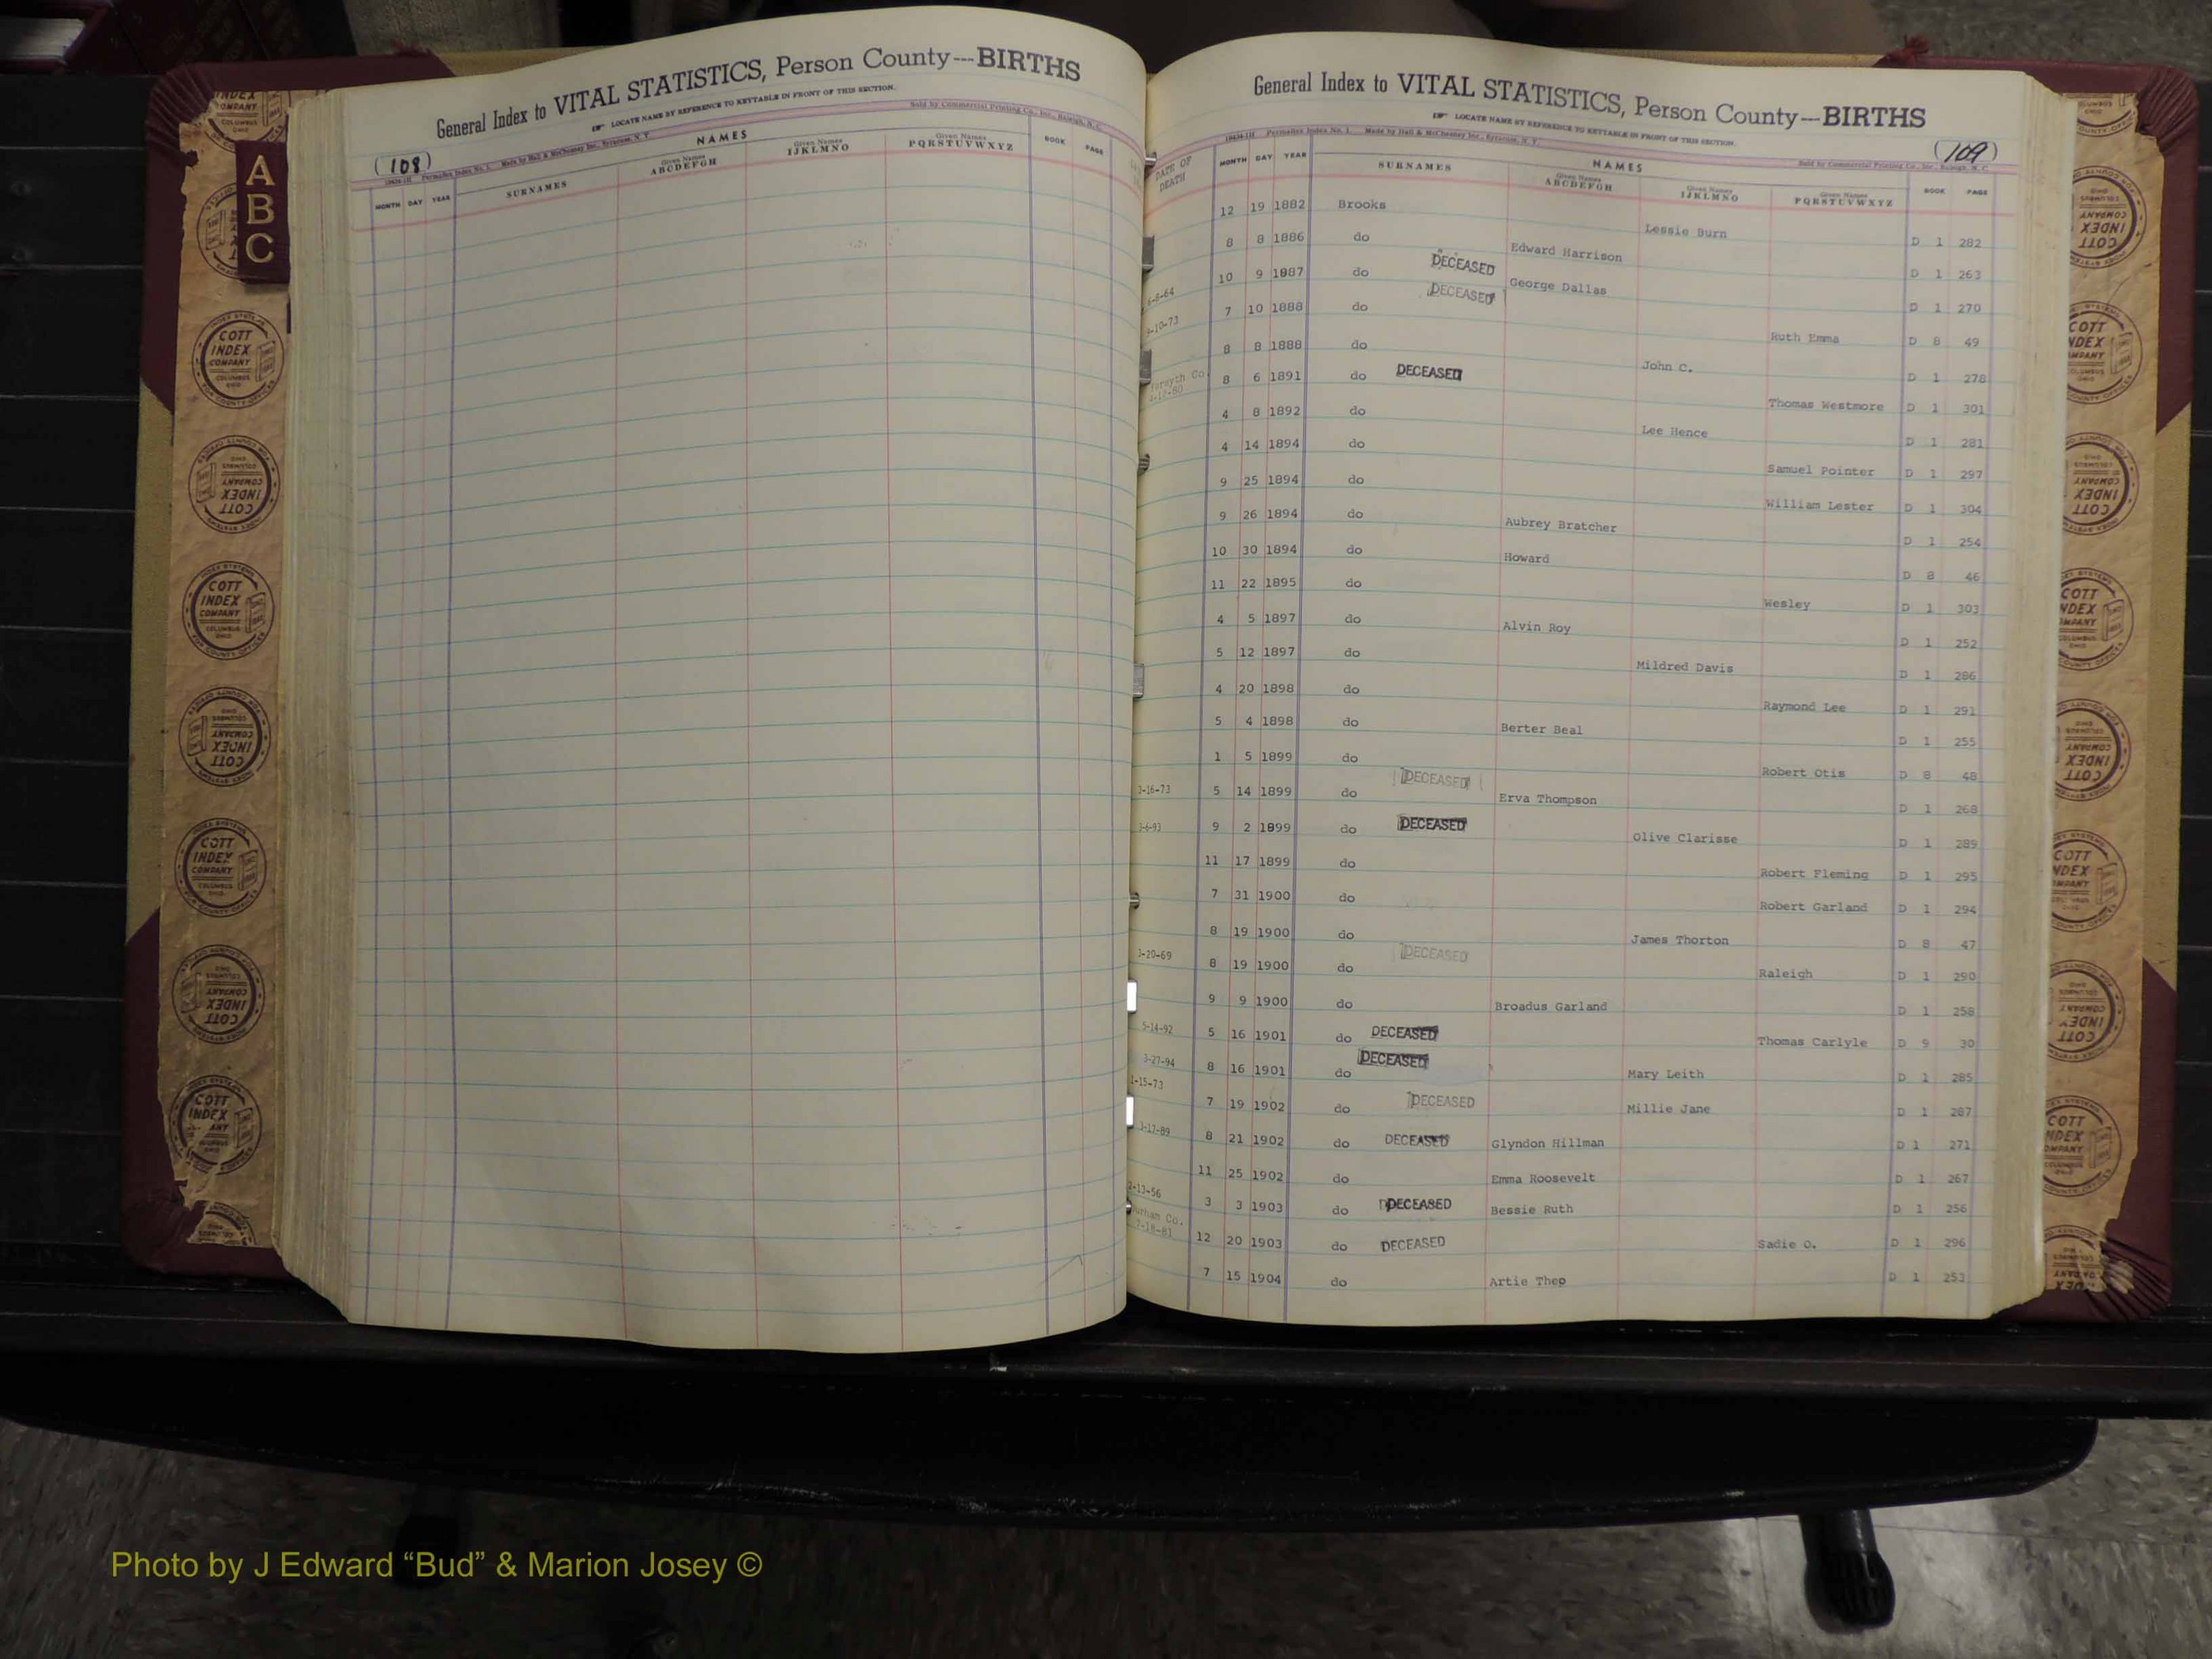 General Index to VITAL STATISTICS, Person County---BIRTHS
LOCATE NAME BY REFERENCE TO KEYTABLE IN FRONT OF THIS SECTION.
Sold by Commercial Printing Co., Inc., Raleigh, N. C.
(108)
NAMES
MONTH DAY YEAR SURNAMES Given Names ABCDEFGH Given Names IJKLMNO Given Names PQRSTUVWXYZ BOOK PAGE
A
B
C
General Index to VITAL STATISTICS, Person County---BIRTHS
LOCATE NAME BY REFERENCE TO KEYTABLE IN FRONT OF THIS SECTION.
Made by Hall & McChesney Inc., Syracuse, N. Y.
Sold by Commercial Printing Co., Inc., Raleigh, N. C.
(109)
NAMES
DATE OF DEATH MONTH DAY YEAR SURNAMES Given Names ABCDEFGH Given Names IJKLMNO Given Names PQRSTUVWXYZ BOOK PAGE
12 19 1882 Brooks Lessie Burn D 1 282
8 8 1886 do Edward Harrison D 1 263
6-8-64 10 9 1887 do DECEASED George Dallas D 1 270
-10-73 7 10 1888 do DECEASED Ruth Emma D 8 49
8 8 1888 do John C. D 1 278
Forsyth Co. 8 6 1891 do DECEASED Thomas Westmore D 1 301
4 8 1892 do Lee Hence D 1 281
4 14 1894 do Samuel Pointer D 1 297
9 25 1894 do William Lester D 1 304
9 26 1894 do Aubrey Bratcher D 1 254
10 30 1894 do Howard D 8 46
11 22 1895 do Wesley D 1 303
4 5 1897 do Alvin Roy D 1 252
5 12 1897 do Mildred Davis D 1 286
4 20 1898 do Raymond Lee D 1 291
5 4 1898 do Berter Beal D 1 255
1 5 1899 do Robert Otis D 8 48
3-16-73 5 14 1899 do DECEASED Erva Thompson D 1 268
3-6-93 9 2 1899 do DECEASED Olive Clarisse D 1 289
11 17 1899 do Robert Fleming D 1 295
7 31 1900 do Robert Garland D 1 294
8 19 1900 do James Thorton D 8 47
3-20-69 8 19 1900 do DECEASED Raleigh D 1 290
9 9 1900 do Broadus Garland D 1 258
5-14-92 5 16 1901 do DECEASED Thomas Carlyle D 9 30
3-27-94 8 16 1901 do DECEASED Mary Leith D 1 285
1-15-73 7 19 1902 do DECEASED Millie Jane D 1 287
3-17-89 8 21 1902 do DECEASED Glyndon Hillman D 1 271
11 25 1902 do Emma Roosevelt D 1 267
2-13-56 3 3 1903 do DECEASED Bessie Ruth D 1 256
Durham Co. 7-18-81 12 20 1903 do DECEASED Sadie O. D 1 296
7 15 1904 do Artie Theo D 1 253
COTT
INDEX
COMPANY
COLUMBUS
OHIO
Photo by J Edward “Bud” & Marion Josey ©